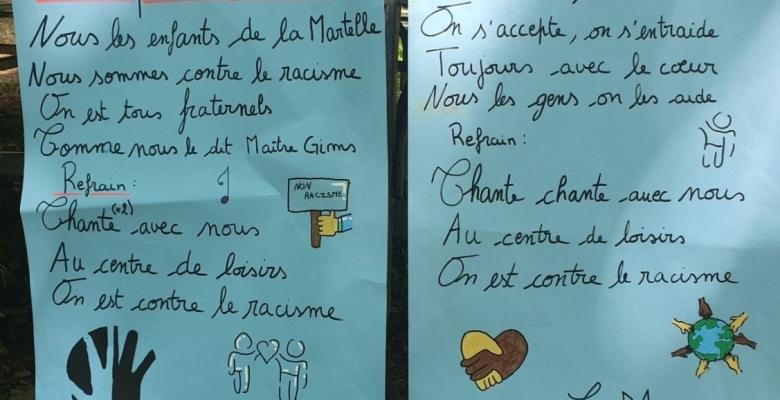 Nous les enfants de la Martelle
Nous sommes contre le racisme
On est tous fraternels
Comme nous le dit Maître Gims
Refrain :
Chante (x2) avec nous
Au centre de loisirs
On est contre le racisme
NON
RACISME
On s'accepte, on s'entraide
Toujours avec le cœur
Nous les gens on les aide
Refrain :
Chante chante avec nous
Au centre de loisirs
On est contre le racisme